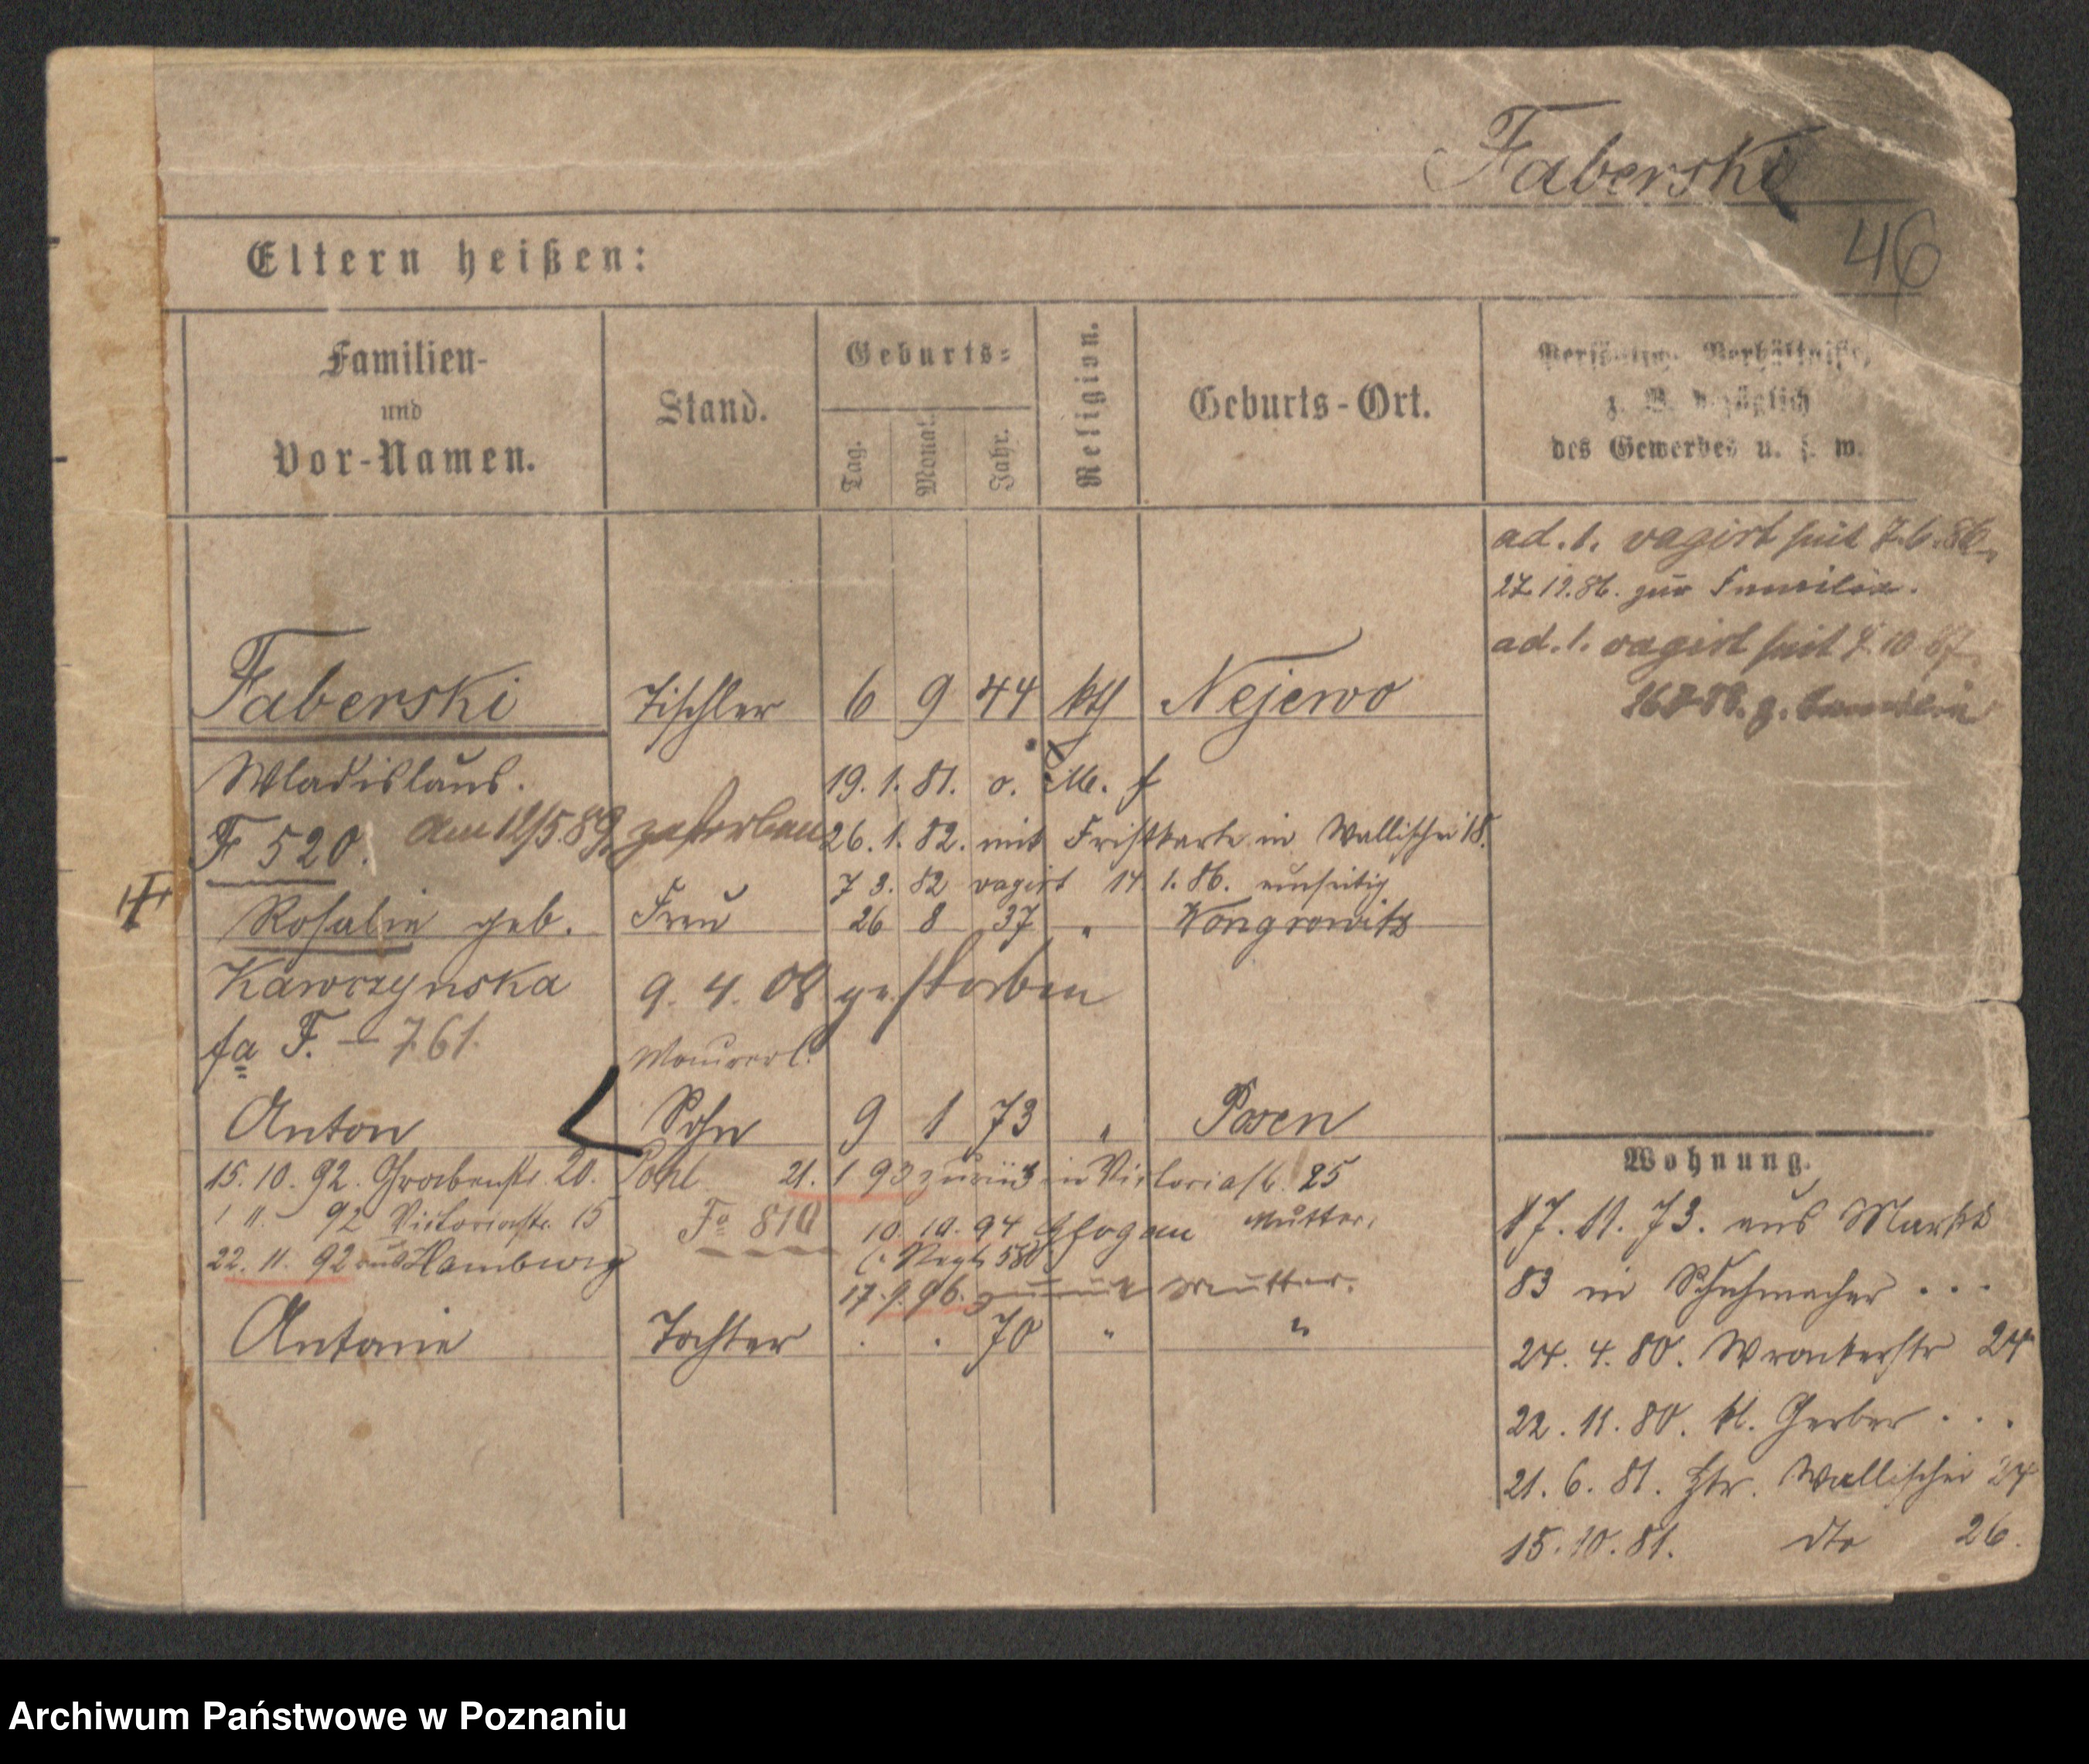 Faberski
46
Eltern heißen:
Familien- und Vor-Namen.
Stand.
Geburts-
Tag.
Monat.
Jahr.
Religion.
Geburts-Ort.
Persönliche Verhältnisse,
z. B. bezüglich
des Gewerbes u. s. w.
ad. 1. vagirt seit 7.6.86.
27.12.86. zur Familie.
ad. 1. vagirt seit 7.10 87
z. Familie
Faberski Tischler 6 9 44 kth Nejewo
Wladislaus. 19. 1. 81. o. M. f
F 520. am 12/5.89 gestorben 26. 1. 82. mit Fristkarte in Wallischei 18.
7 3. 82 vagirt 14 1. 86. einseitig
Rosalie geb. Frau 26 8 37 " Wongrowitz
Kawczynska 9. 4. 08 gestorben
fa F. – 761.
Maurerl.
Anton Sohn 9 1 73 " Posen
15. 10. 92. Grabenstr. 20. Pohl 21. 1 93 zurück in Victoriastr. 25
1 11. 92 Victoriastr. 15 Fa 810 10. 10. 94 Glogau Mutter.
22. 11. 92 aus Hamburg Regt. 58
17. 9. 96. zurück Mutter.
Antonie Tochter . . 70 " "
Wohnung.
17. 11. 73. aus Markt
83 in Schuhmacher . . .
24. 4. 80. Wronkerstr 24
22. 11. 80. kl. Gerber . . .
21. 6. 81. Htr. Wallischei 27
15. 10. 81. dto 26.
Archiwum Państwowe w Poznaniu